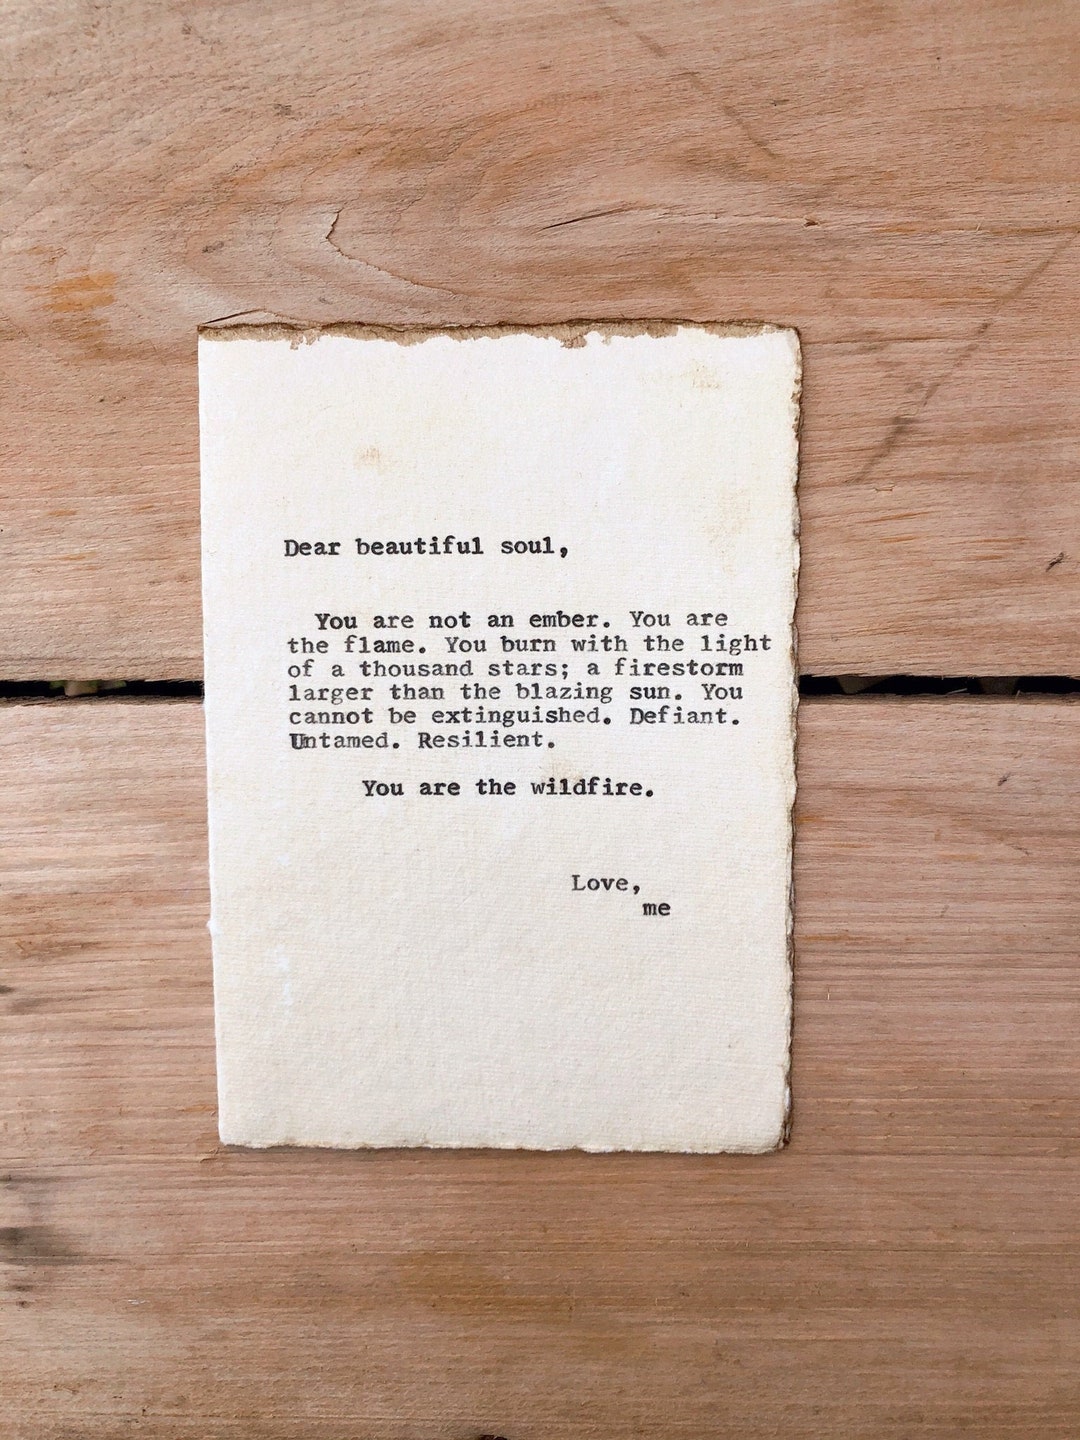 Dear beautiful soul,
You are not an ember. You are
the flame. You burn with the light
of a thousand stars; a firestorm
larger than the blazing sun. You
cannot be extinguished. Defiant.
Untamed. Resilient.
You are the wildfire.
Love,
me